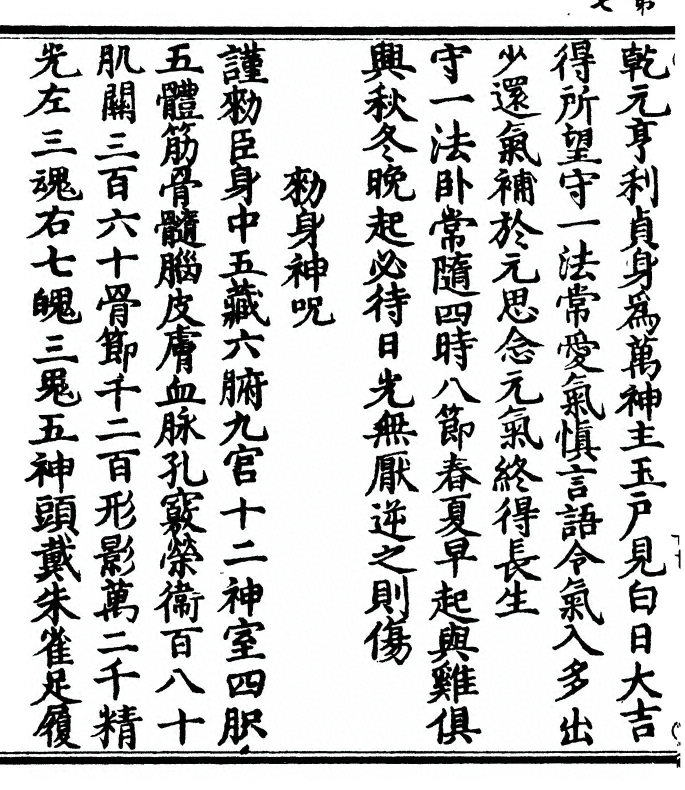 乾元亨利貞身為萬神主玉戶見白日大吉
得所望守一法常愛氣慎言語令氣入多出
少還氣補於元思念元氣終得長生
守一法卧常隨四時八節春夏早起與雞俱
興秋冬晚起必待日光無厭逆之則傷
勑身神呪
謹勑臣身中五藏六腑九宮十二神室四胑
五體筋骨髓腦皮膚血脉孔竅榮衞百八十
肌關三百六十骨節千二百形影萬二千精
光左三魂右七魄三䰟五神頭戴朱雀足履